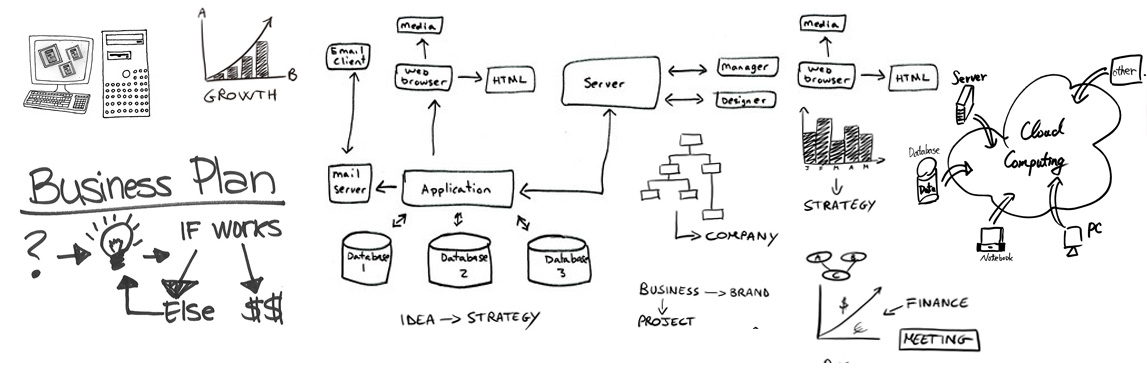 A
B
GROWTH
Business Plan
?
IF WORKS
Else
$$
Media
Email
Client
Web
browser
HTML
Server
Manager
Designer
mail
server
Application
Database
1
Database
2
Database
3
IDEA → STRATEGY
COMPANY
BUSINESS → BRAND
PROJECT
Media
Web
browser
HTML
STRATEGY
Server
other
Cloud
Computing
Database
Data
Notebook
PC
A
B
C
$
€
FINANCE
MEETING